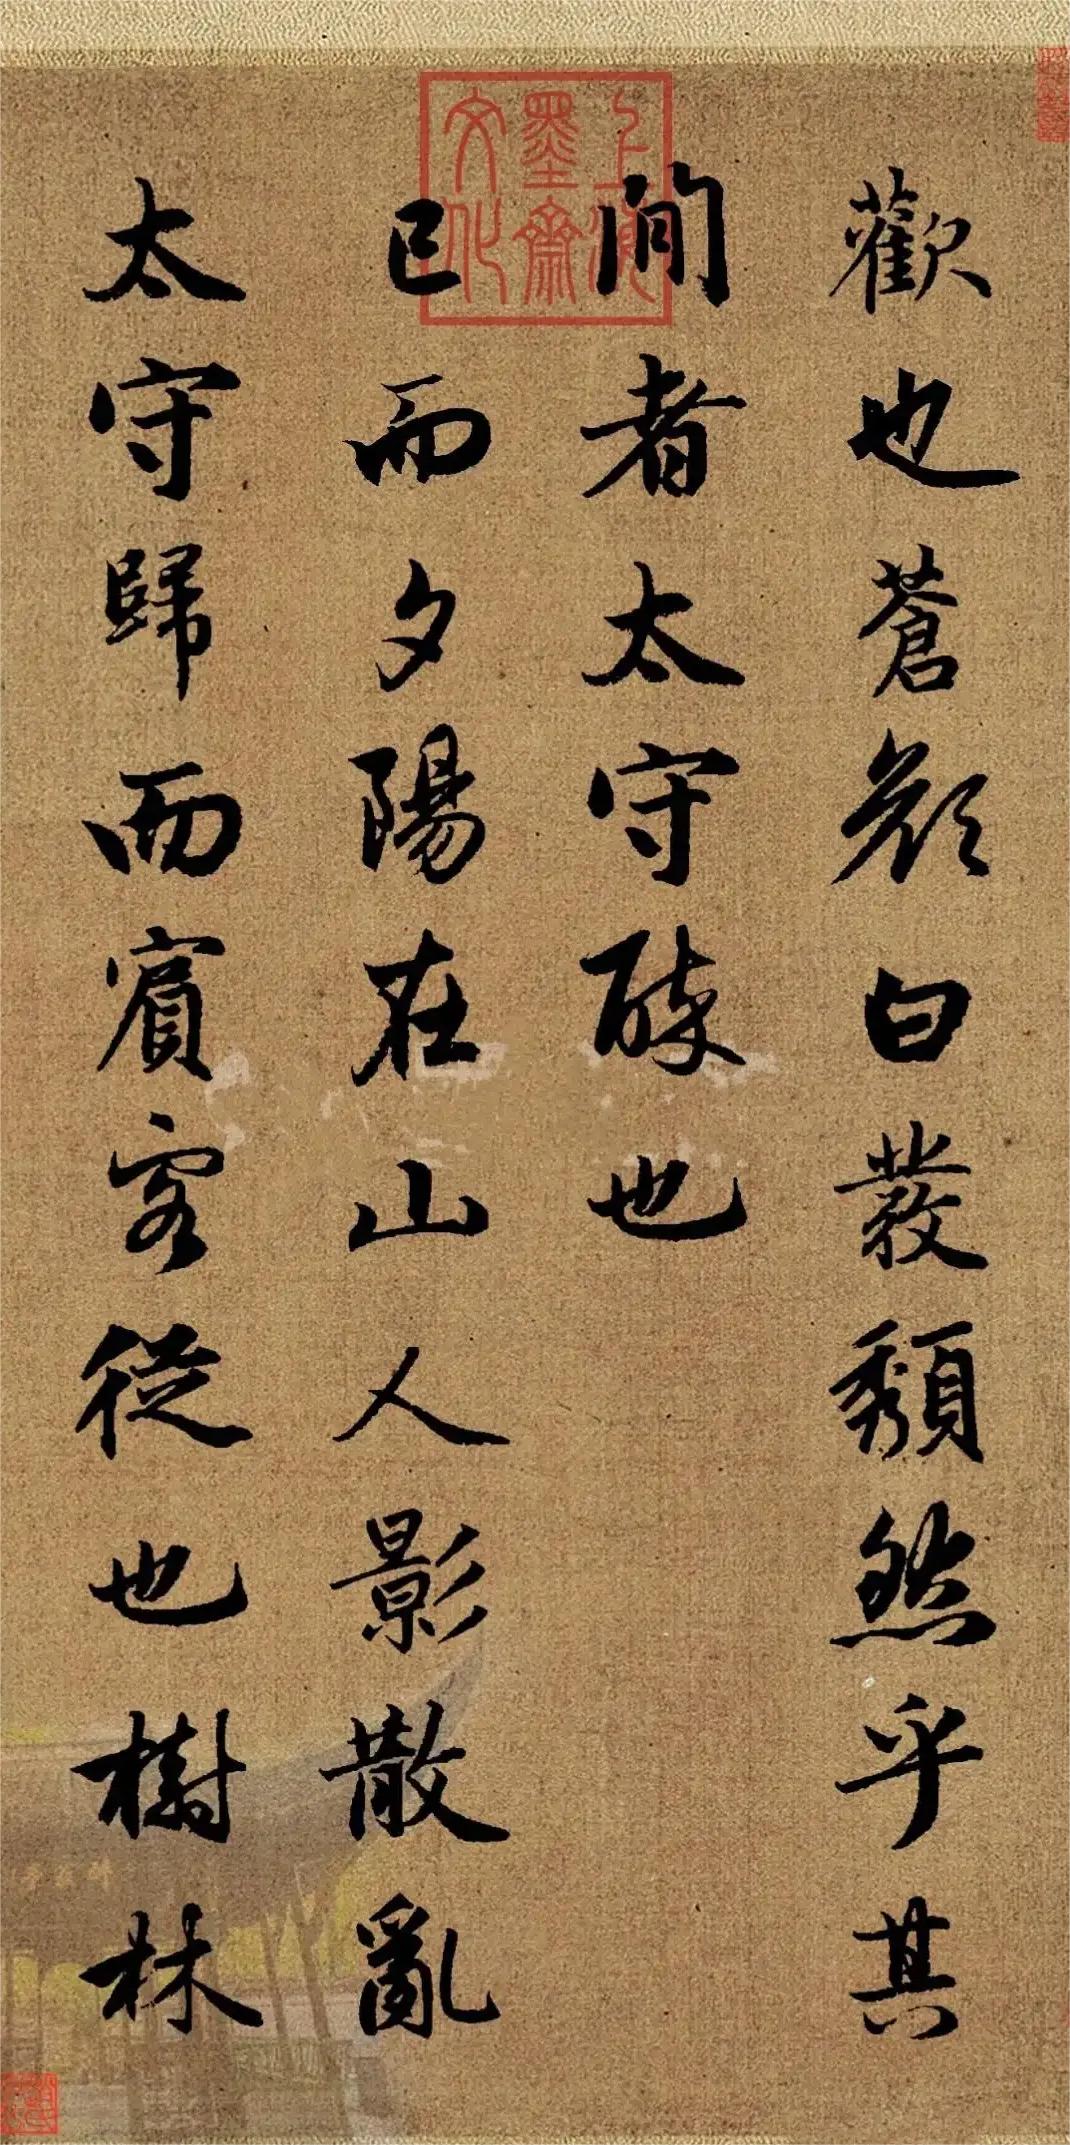 歡也蒼顏白發頽然乎其
間者太守醉也
已而夕陽在山人影散亂
太守歸而賓客從也樹林
上海
墨齋
文化